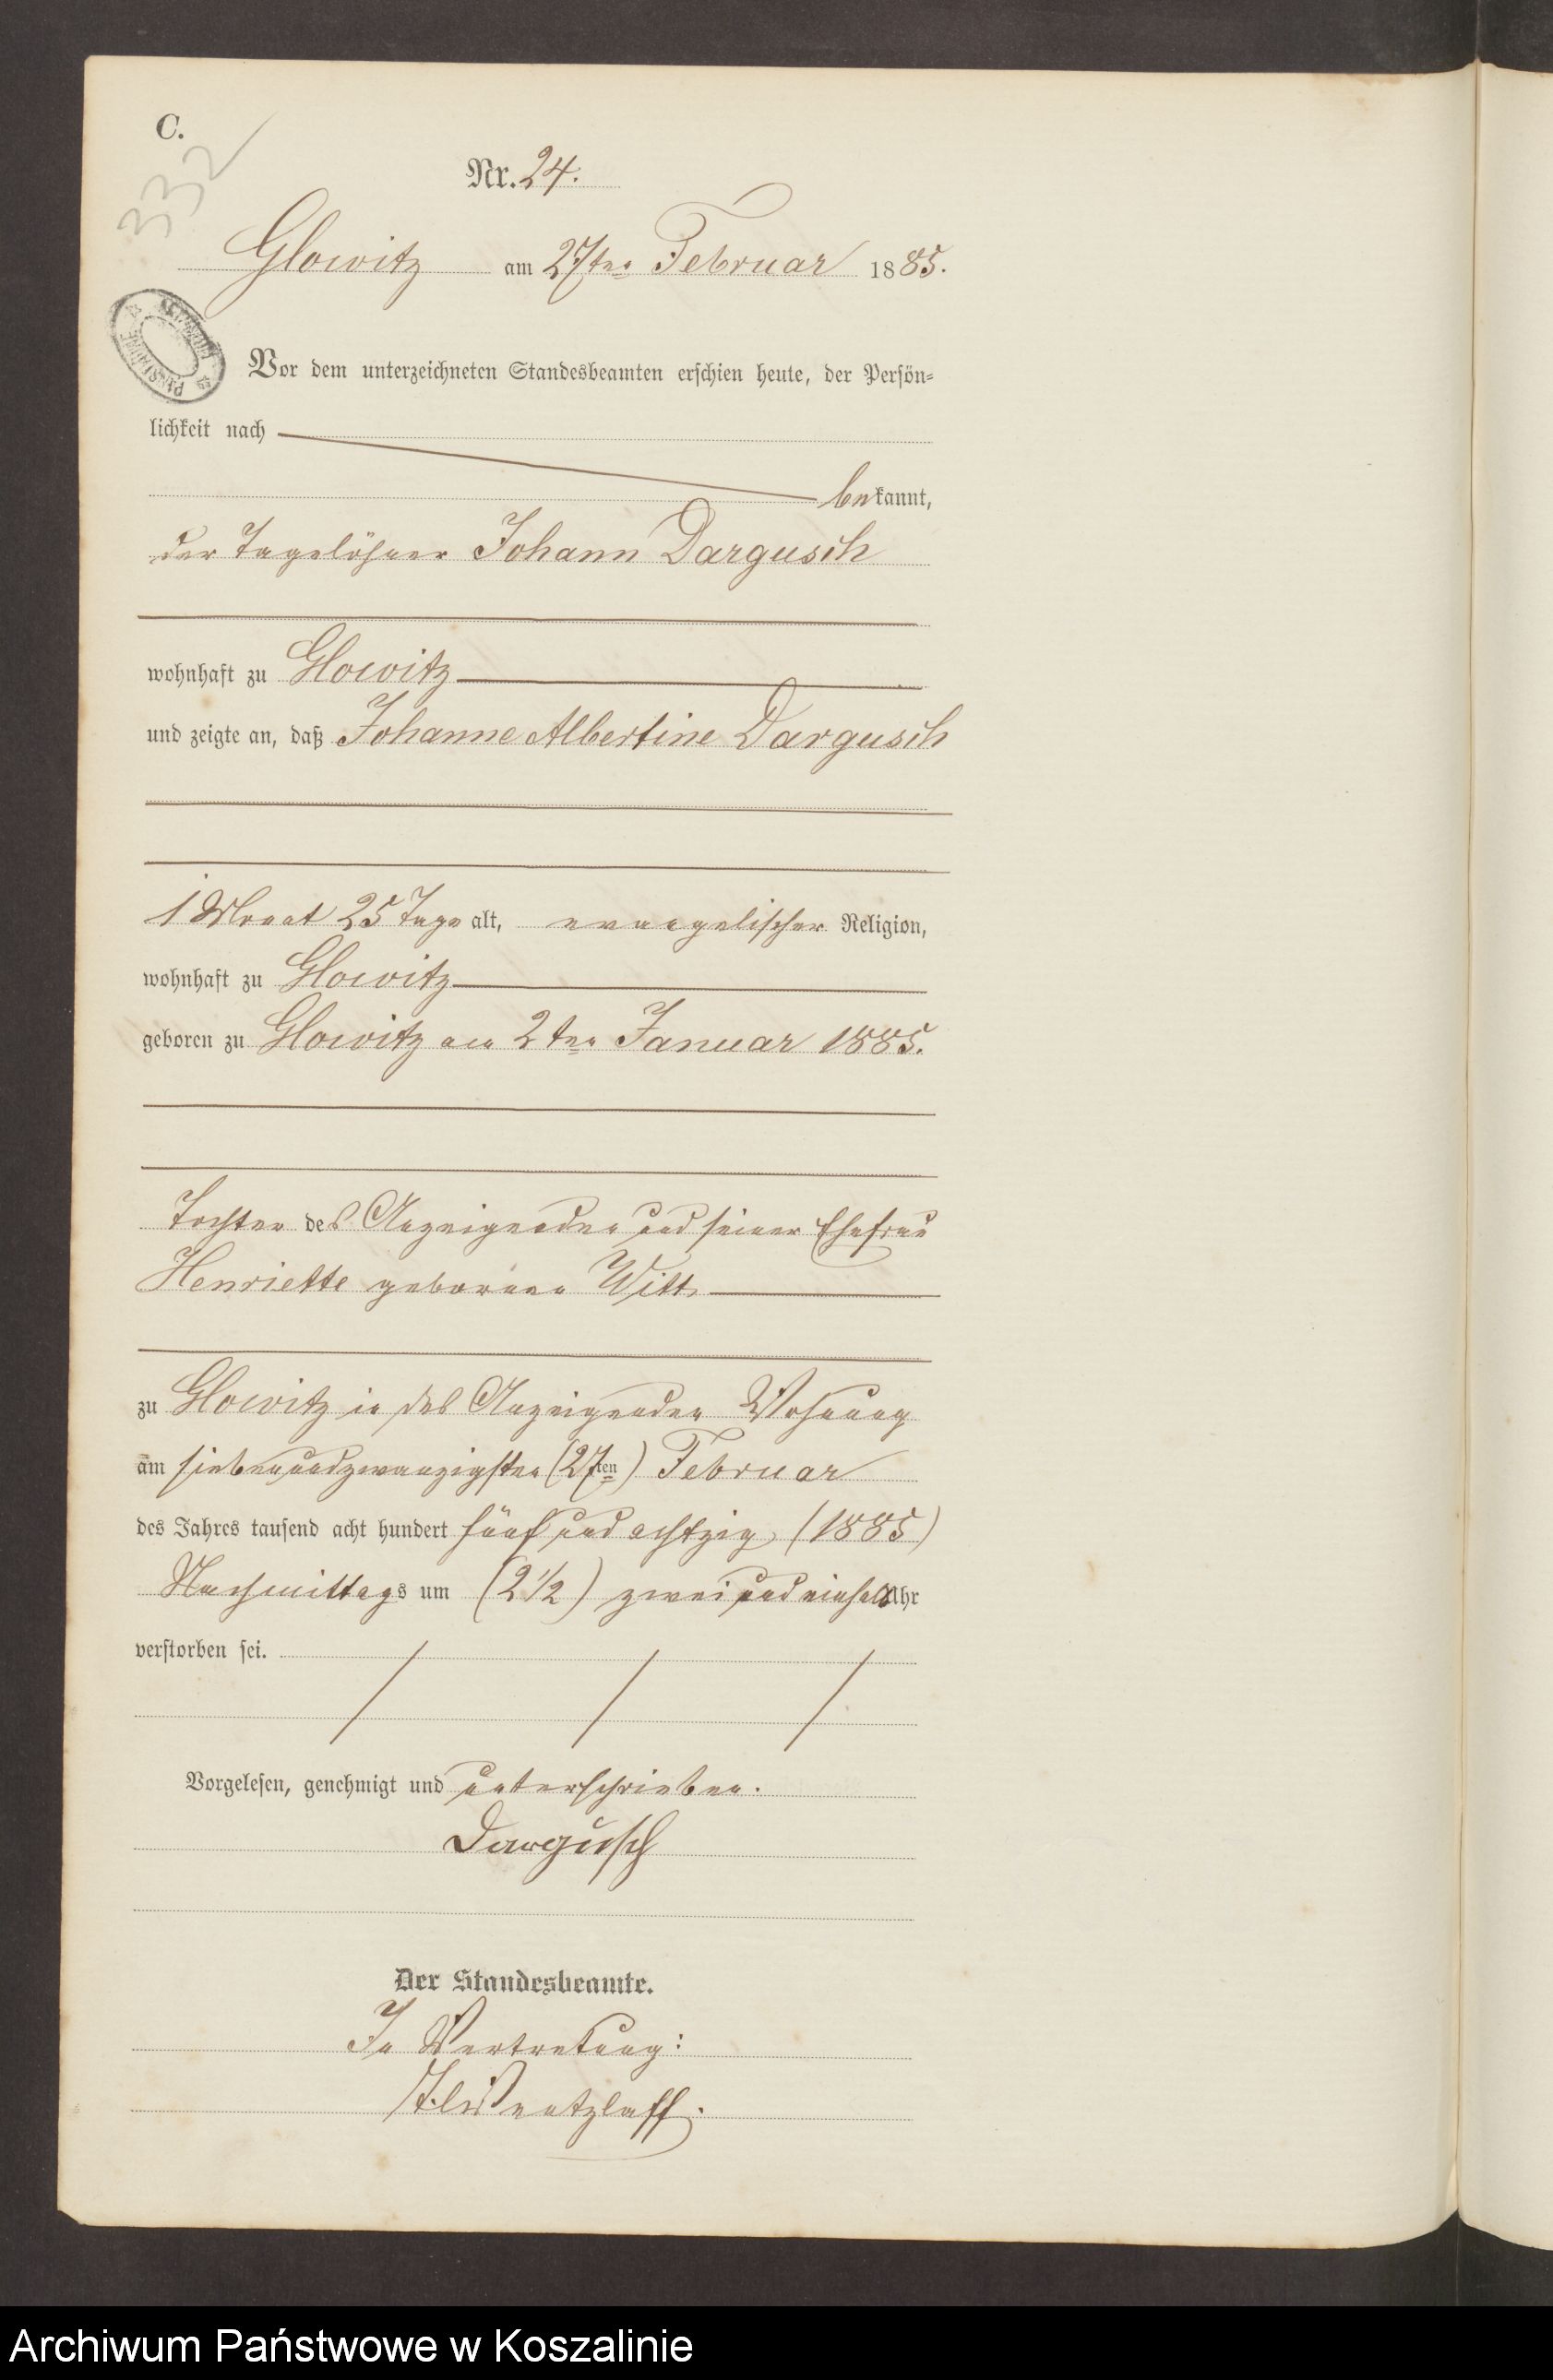 C.
332
Nr. 24.
Glowitz am 27ten Februar 1885.
Vor dem unterzeichneten Standesbeamten erschien heute, der Persön-
lichkeit nach
bekannt,
der Tagelöhner Johann Dargusch
wohnhaft zu Glowitz
und zeigte an, daß Johanne Albertine Dargusch
1 Monat 25 Tage alt, evangelischer Religion,
wohnhaft zu Glowitz
geboren zu Glowitz am 2ten Januar 1885.
Tochter des Anzeigenden und seiner Ehefrau
Henriette geborenen Witt
zu Glowitz in des Anzeigenden Wohnung
am siebenundzwanzigsten (27ten) Februar
des Jahres tausend acht hundert fünf und achtzig (1885)
Nachmittags um (2 1/2) zwei und einhalb Uhr
verstorben sei.
Vorgelesen, genehmigt und unterschrieben.
Dargusch
Der Standesbeamte.
In Vertretung:
Wentzlaff.
Archiwum Państwowe w Koszalinie